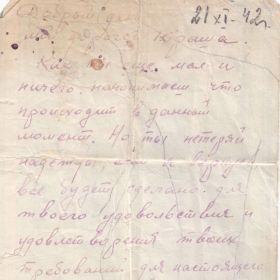 21/XI-42г.
Добрый день
Краша.
Как ты еще мал и
ничего непонимаеш что
происходит в данный
момент. Но ты нетеряй
надежды
все будет сделано для
твоего удовольствия и
удовлетворения твоих
требований для настоящего